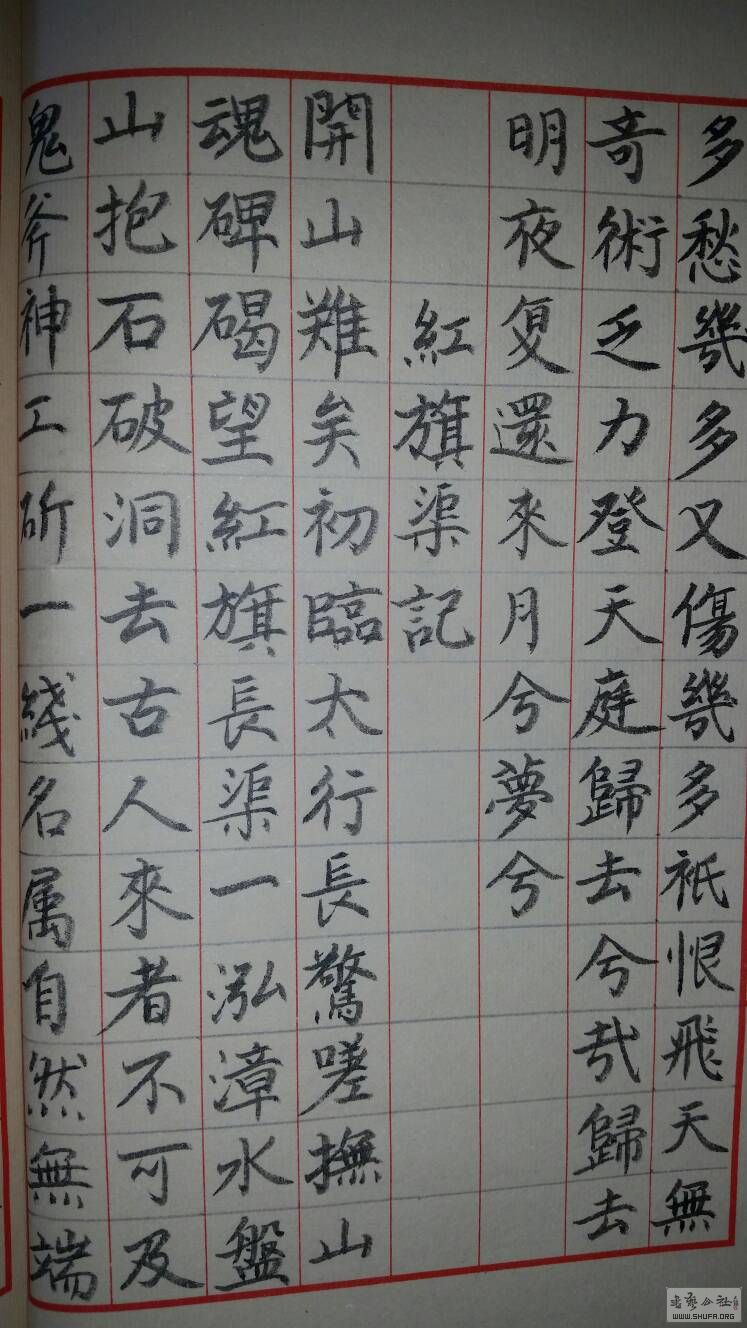 多愁幾多又傷幾多祇恨飛天無
奇術乏力登天庭歸去兮哉歸去
明夜复還來月兮夢兮
紅旗渠記
開山難矣初臨太行長驚嗟撫山
魂碑碣望紅旗長渠一泓漳水盤
山抱石破洞去古人來者不可及
鬼斧神工斫一綫名属自然無端
WWW.SHUFA.ORG